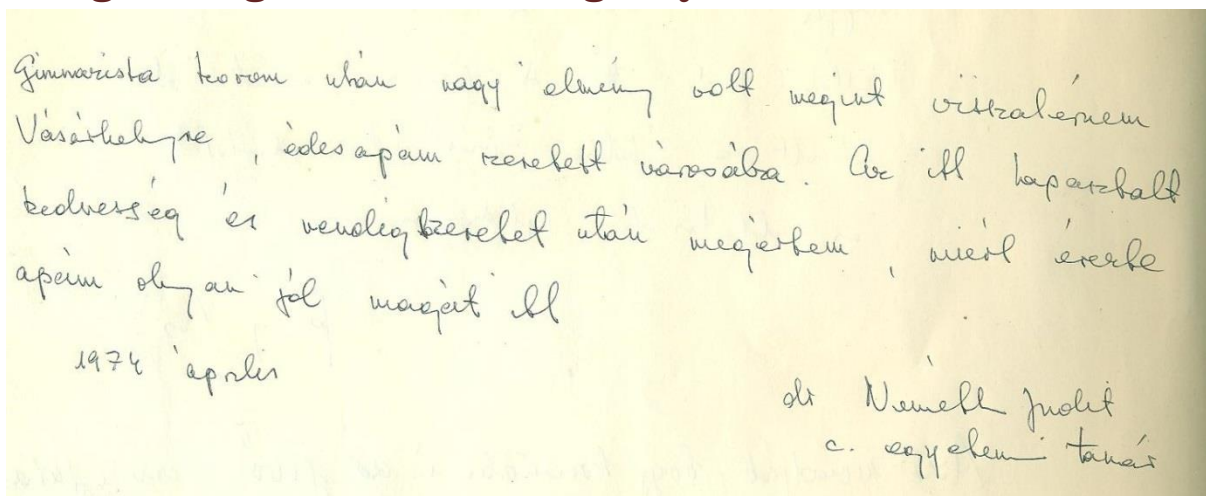 Gimnazista korom után nagy élmény volt megint visszatérnem
Vásárhelyre, édesapám szeretett városába. Az itt tapasztalt
kedvesség és vendégszeretet után megértem, miért érezte
apám olyan jól magát itt
1974 április
dr Németh Judit
c. egyetemi tanár